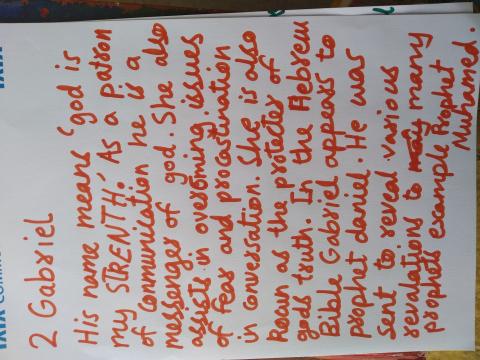 2 Gabriel
His name means 'god is
my STRENTH.' As a patron
of communication he is a
messenger of god. She also
assists in overcoming issues
of fear and procastination
in conversation. She is also
Reown as the protecter of
gods truth. In the Hebrew
Bible Gabriel appears to
prophet daniel. He was
sent to reveal various
revalations to many
prophets example Prophet
Muhamed.